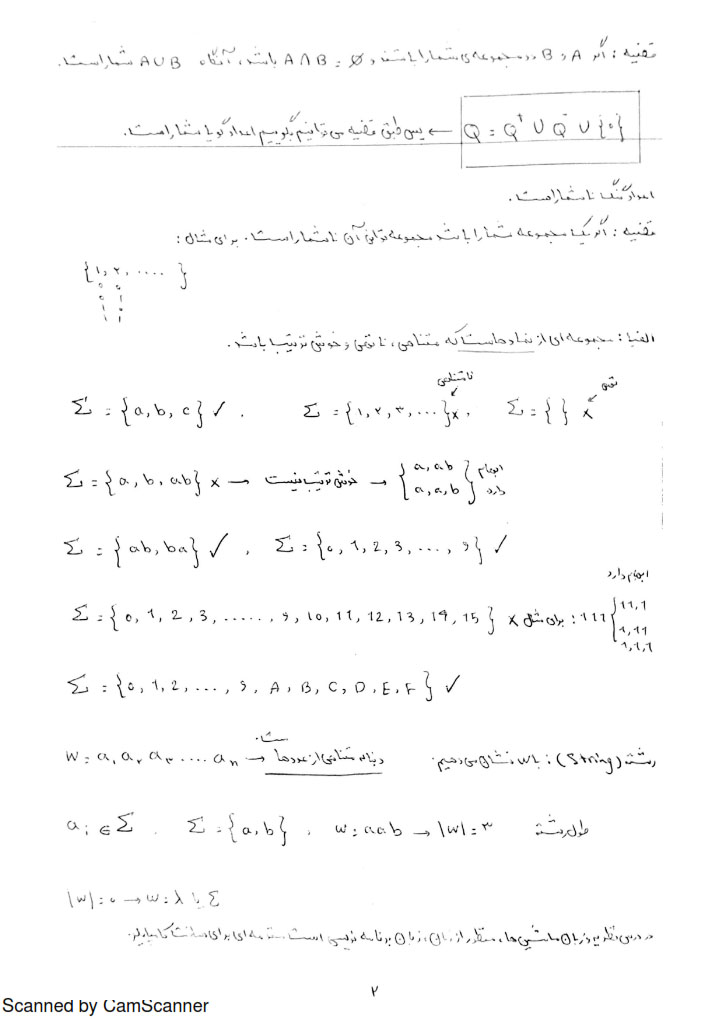 قضیه : اگر A و B دو مجموعه‌ی شمارا باشند و A ∩ B = ∅ باشد، آنگاه A ∪ B شمارا است.
Q = Q⁺ ∪ Q⁻ ∪ {۰} ← پس طبق قضیه می توانیم بگوییم اعداد گویا شمارا است.
اعداد گنگ ناشمارا است.
قضیه : اگر یک مجموعه شمارا باشد مجموعه توانی آن ناشمارا است. برای مثال :
{۱, ۲, .... }
۰ ۰
۰ ۱
۱ ۰
۱ ۱
الفبا : مجموعه ای از نمادهاست که متناهی، ناتهی و خوش ترتیب باشد.
نامتناهی تهی
Σ = {a, b, c} ✓ . Σ = {۱, ۲, ۳, ...} x . Σ = { } x
Σ = {a, b, ab} x → خوش ترتیب نیست → { a, ab a, a, b } ابهام دارد
Σ = {ab, ba} ✓ . Σ = {0, 1, 2, 3, ..., 9} ✓
ابهام دارد
Σ = {0, 1, 2, 3, ......, 9, 10, 11, 12, 13, 14, 15} x برای مثال : 111 { 11,1 1,11 1,1,1
Σ = {0, 1, 2, ..., 9, A, B, C, D, E, F} ✓
رشته (String) : با w نشان می دهیم. دنباله متناهی از → w = a₁ a₂ a₃ .... aₙ
طول رشته aᵢ ∈ Σ . Σ = {a, b} . w = aab → |w| = ۳
|w| = 0 → w = λ یا ε
در درس نظریه زبان ماشین ها، منظور از زبان، زبان برنامه نویسی است
۲
Scanned by CamScanner